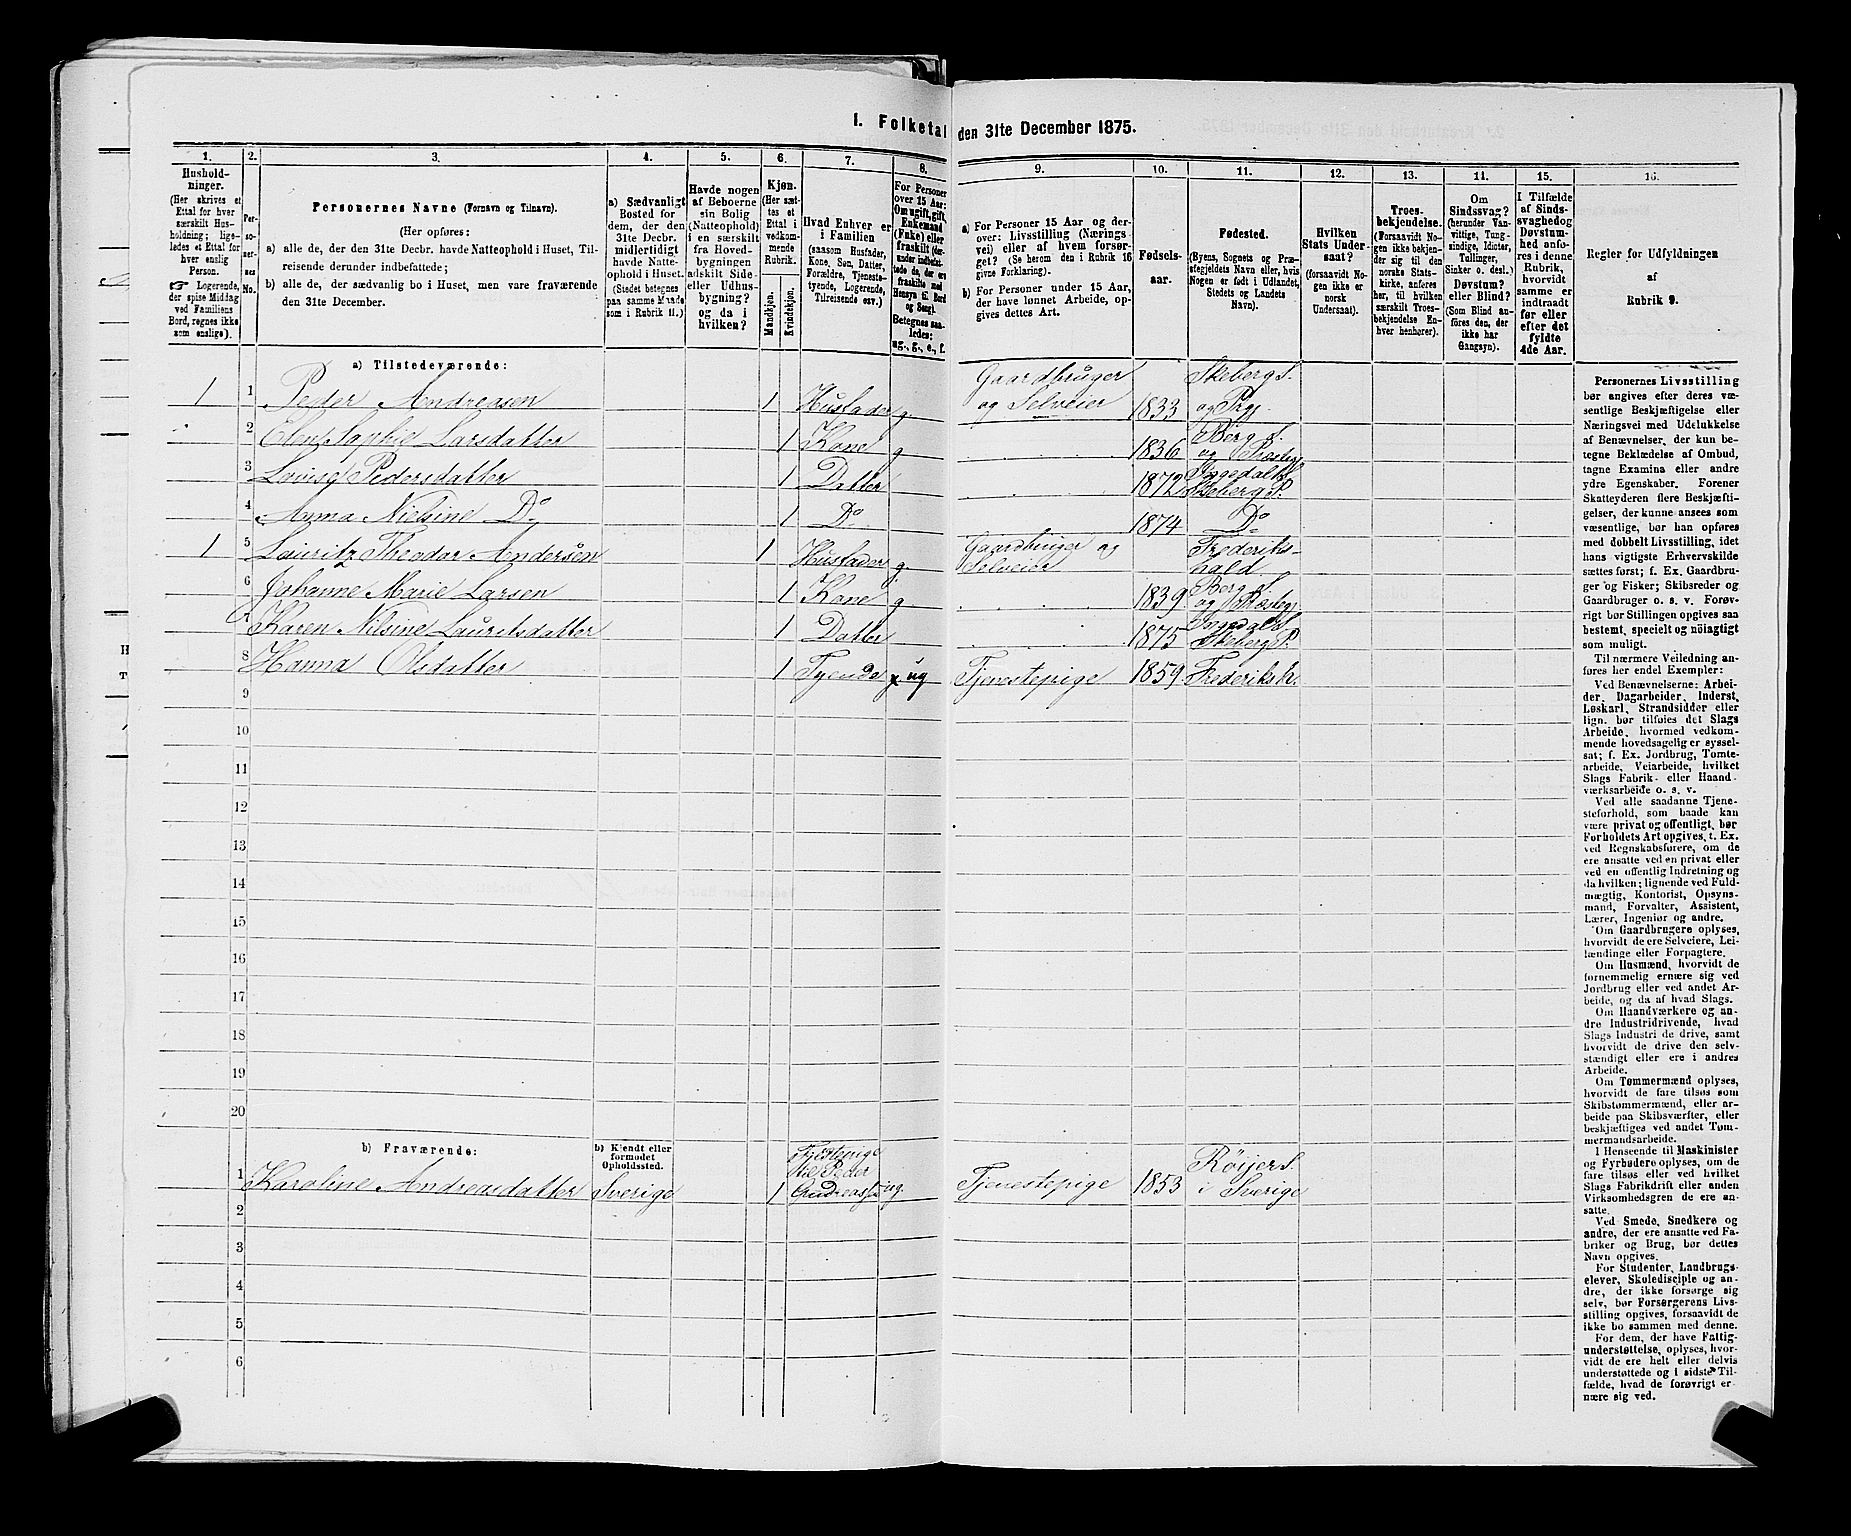 1. Folketal den 31te December 1875.
1.
2.
3.
4.
5.
6.
7.
8.
9.
10.
11.
12.
13.
14.
15.
16.
Husholdninger.
(Her skrives et
Ettal for hver
særskilt Husholdning;
ligeledes et Ettal for
hver enslig
Person.
☞ Logerende,
der spise Middag
ved Familiens
Bord, regnes ikke
som enslige).
Personernes No.
Personernes Navne (Fornavn og Tilnavn).
(Her opføres:
a) alle de, der den 31te Decbr. havde Natteophold i Huset, Tilreisende
derunder indbefattede;
b) alle de, der sædvanlig bo i Huset, men vare fraværende
den 31te December.
a) Sædvanligt
Bosted for
dem, der den
31te Decbr.
midlertidigt
havde Natteophold
i Huset.
(Stedet betegnes
paa samme Maade
som i Rubrik 11.)
Havde nogen
af Beboerne
sin Bolig
(Natteophold)
i en særskilt
fra Hovedbygningen
adskilt Side-
eller Udhusbygning?
og da i
hvilken?
Kjøn.
(Her sættes
et
Ettal i
vedkommende
Rubrik.
Mandkjøn.
Kvindekjøn.
Hvad Enhver er
i Familien
(saasom Husfader,
Kone, Søn, Datter,
Forældre, Tjenestetyende,
Logerende,
Tilreisende osv.)
For Personer
over 15 Aar:
Om ugift, gift,
Enkemand
(Enke) eller
fraskilt
Betegnes saaledes:
ug., g., e., f.
a) For Personer 15 Aar og derover:
Livsstilling (Næringsvei)
eller af hvem forsørget?
(Se herom den i Rubrik 16
givne Forklaring).
b) For Personer under 15 Aar,
der have lønnet Arbeide, opgives
dettes Art.
Fødselsaar.
Fødested.
(Byens, Sognets og Præstegjeldets
Navn eller, hvis
Nogen er født i Udlandet,
Stedets og Landets
Navn).
Hvilken
Stats Undersaat?
(forsaavidt Nogen
ikke er
norsk
Undersaat).
Troesbekjendelse.
(Forsaavidt Nogen
ikke bekjender
sig til den
norske Statskirke,
anføres
her, til hvilken
særskilt Troesbekjendelse
Enhver
henhører).
Om
Sindssvag?
(herunder Vanvittige,
Tungsindige,
Idioter,
Tullinger,
Sinker o. desl.)
Døvstum?
eller Blind?
(Som Blind anføres
den, der
ikke har
Gangsyn).
I Tilfælde
af Sindssvaghed
og
Døvstumhed
anføres
i denne
Rubrik,
hvorvidt
samme er
indtraadt
før eller
efter det
fyldte
4de Aar.
Regler for Udfyldningen
af
Rubrik 9.
a) Tilstedeværende:
1 1 Peder Andreasen 1 Husfader g. Gaardbruger og Selveier 1833 Skeberg S. og Prgj.
2 Elen Sophie Larsdatter 1 Kone g 1836 Berg S. og Præsteg.
3 Lovise Pedersdatter 1 Datter 1872 Ingedals S. Skeberg P.
4 Anna Nielsine Do 1 Do 1874 Do
1 5 Lauritz Theodor Andersen 1 Husfader g. Gaardbruger og Selveier Frederikshald
6 Johanne Marie Larsen 1 Kone g 1839 Berg S. og Præsteg.
7 Karen Nilsine Lauritsdatter 1 Datter 1875 Ingedals S. Skeberg P.
8 Hanna Olsdatter 1 Tyende ug Tjenestepige 1859 Frederiksh.
9
10
11
12
13
14
15
16
17
18
19
20
b) Fraværende:
b) Kjendt eller
formodet
Opholdssted.
1 Karoline Andreasdatter Sverige 1 Tjenestepige hos Peder Andreas ug. Tjenestepige 1853 Röijer S. i Sverige
2
3
4
5
6
Personernes Livsstilling
bør angives efter deres væsentlige
Beskjæftigelse eller
Næringsvei med Udelukkelse
af Benævnelser, der kun betegne
Beklædelse af Ombud,
tagne Examina eller andre
ydre Egenskaber. Forener
Skatteyderen flere Beskjæftigelser,
der kunne ansees som
væsentlige, bør han opføres
med dobbelt Livsstilling, idet
hans vigtigste Erhvervskilde
sættes først; f. Ex. Gaardbruger
og Fisker; Skibsreder og
Gaardbruger o. s. v. Forøvrigt
bør Stillingen opgives saa
bestemt, specielt og nöiagtigt
som muligt.
Til nærmere Veiledning anføres
her endel Exempler:
Ved Benævnelserne: Arbeider,
Dagarbeider, Inderst,
Løskarl, Strandsidder eller
lign. bør tilføies det Slags
Arbeide, hvormed vedkommende
hovedsagelig er sysselsat;
f. Ex. Jordbrug, Tomtearbeide,
Veiarbeide, hvilket
Slags Fabrik- eller Haandværksarbeide
o. s. v.
Ved alle saadanne Tjenesteforhold,
som baade kan
være privat og offentligt, bør
Forholdets Art opgives, t. Ex.
ved Regnskabsførere, om de
ere ansatte ved en privat eller
ved en offentlig Indretning og
da hvilken; lignende ved Fuldmægtig,
Kontorist, Opsynsmand,
Forvalter, Assistent,
Lærer, Ingeniør og andre.
Om Gaardbrugere oplyses,
hvorvidt de ere Selveiere, Leilændinge
eller Forpagtere.
Om Husmænd, hvorvidt de
fornemmelig ernære sig ved
Jordbrug eller ved andet Arbeide,
og da af hvad Slags.
Om Haandværkere og andre
Industridrivende, hvad
Slags Industri de drive, samt
hvorvidt de drive den selvstændigt
eller ere i andres
Arbeide.
Om Tømmermænd oplyses,
hvorvidt de fare tilsøs som
Skibstømmermænd, eller arbeide
paa Skibsværfter, eller
beskjæftiges ved andet Tømmermandsarbeide.
I Henseende til Maskinister
og Fyrbødere oplyses, om de
fare tilsøs eller ved hvilket
Slags Fabrikdrift eller anden
Virksomhedsgren de ere ansatte.
Ved Smede, Snedkere og
andre, der ere ansatte ved Fabriker
og Brug, bør dettes
Navn opgives.
For Studenter, Landbrugselever,
Skoledisciple og andre,
der ikke forsørge sig
selv, bør Forsørgerens Livsstilling
opgives, forsaavidt de
ikke bo sammen med denne.
For dem, der have Fattigunderstøttelse,
oplyses, hvorvidt
de ere helt eller delvis
understøttede og i sidste Tilfælde,
hvad de forøvrigt ernære
sig ved.